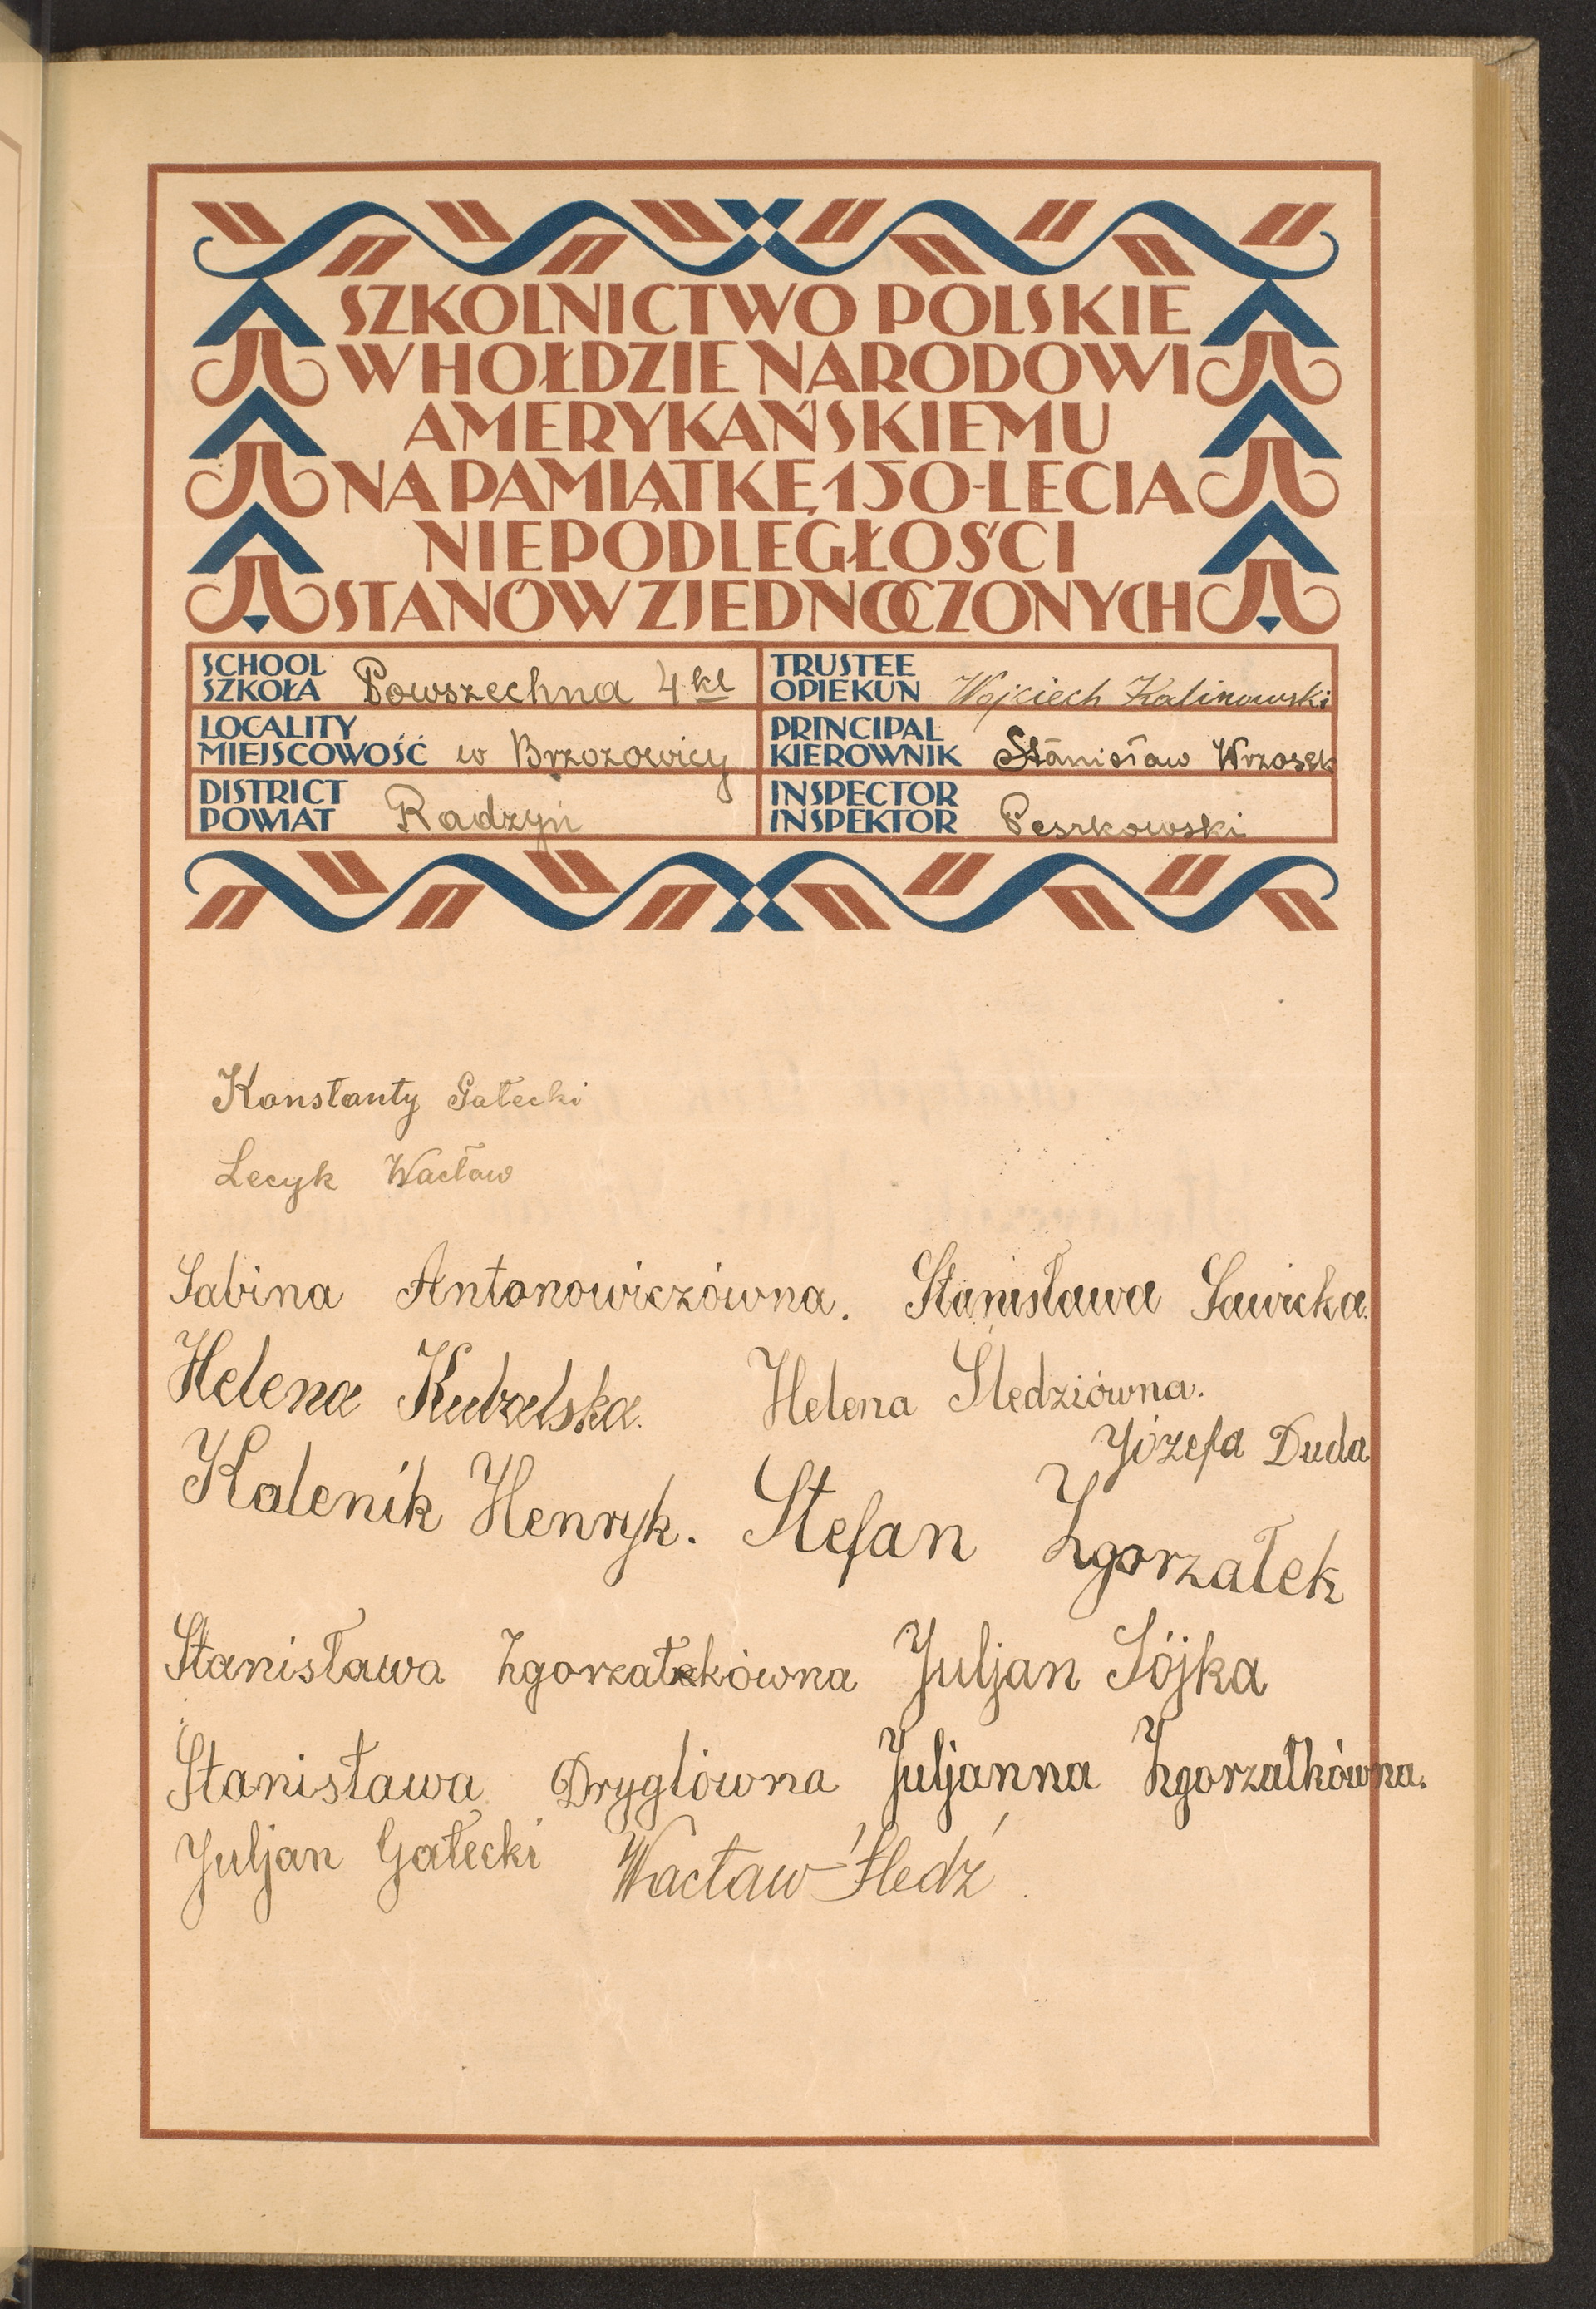 SZKOLNICTWO POLSKIE
W HOŁDZIE NARODOWI
AMERYKAŃSKIEMU
NA PAMIĄTKĘ 150-LECIA
NIEPODLEGŁOŚCI
STANÓW ZJEDNOCZONYCH
SCHOOL
SZKOŁA Powszechna 4 kl
TRUSTEE
OPIEKUN Wojciech Kalinowski
LOCALITY
MIEJSCOWOŚĆ w Brzozowicy
PRINCIPAL
KIEROWNIK Stanisław Wrzosek
DISTRICT
POWIAT Radzyń
INSPECTOR
INSPEKTOR Peszkowski
Konstanty Gałecki
Lecyk Wacław
Sabina Antonowiczówna. Stanisława Sawicka.
Helena Kubalska. Helena Śledziówna.
Józefa Duda
Kalenik Henryk. Stefan Zgorzałek
Stanisława Zgorzałekówna Juljan Sójka
Stanisława Dryglówna Juljanna Zgorzałkówna.
Juljan Gałecki Wacław Śledź